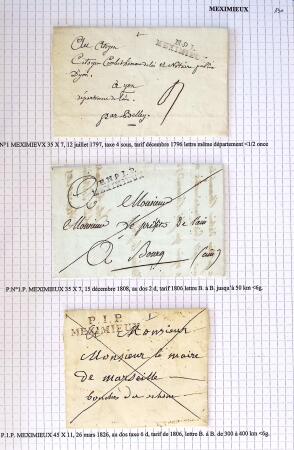 MEXIMIEUX
N°1
MEXIMIEUX
Au Citoyen
Dijon
département de l'ain
par Belley
N°1 MEXIMIEVX 35 X 7, 12 juillet 1797, taxe 4 sous, tarif décembre 1796 lettre même département <1/2 once
MEXIMIEUX
A Monsieur
Monsieur le préfet de l'ain
A Bourg (ain)
P.N°1.P. MEXIMIEUX 35 X 7, 15 décembre 1808, au dos 2 d, tarif 1806 lettre B. à B. jusqu'à 50 km <6g.
P.1.P.
MEXIMIEUX
A Monsieur
Monsieur le maire
de marseille
bouches du rhône
P.1P. MEXIMIEUX 45 X 11, 26 mars 1826, au dos taxe 6 d, tarif de 1806, lettre B. à B. de 300 à 400 km <6g.